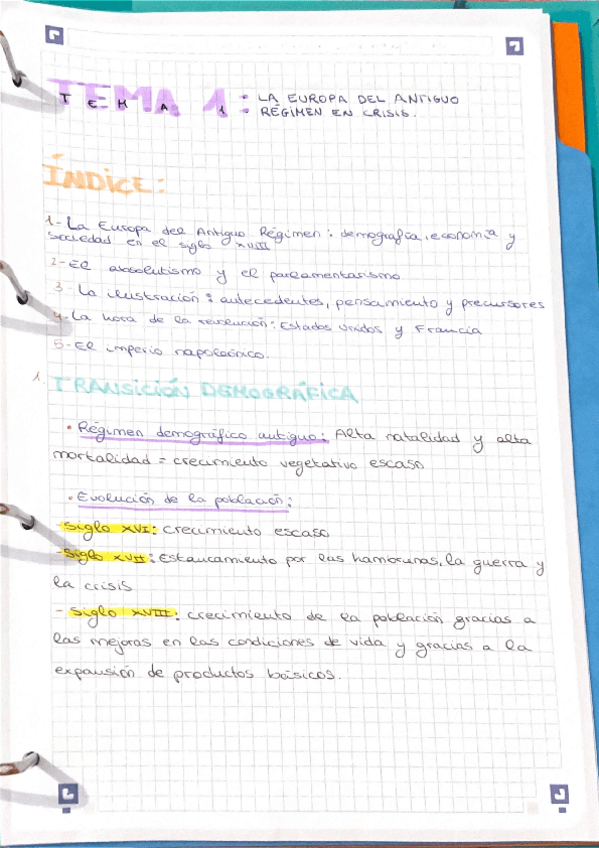 TEMA 1: LA EUROPA DEL ANTIGUO
RÉGIMEN EN CRISIS.
ÍNDICE:
1- La Europa del Antiguo Régimen: demografía, economía y
sociedad en el siglo XVIII
2- El absolutismo y el parlamentarismo
3- La ilustración: antecedentes, pensamiento y precursores
4- La hora de la revolución: Estados Unidos y Francia
5- El imperio napoleónico.
1. TRANSICIÓN DEMOGRÁFICA
• Régimen demográfico antiguo: Alta natalidad y alta
mortalidad = crecimiento vegetativo escaso
• Evolución de la población:
- Siglo XVI: crecimiento escaso
- Siglo XVII: Estancamiento por las hambrunas, la guerra y
la crisis
- Siglo XVIII: crecimiento de la población gracias a
las mejoras en las condiciones de vida y gracias a la
expansión de productos básicos.